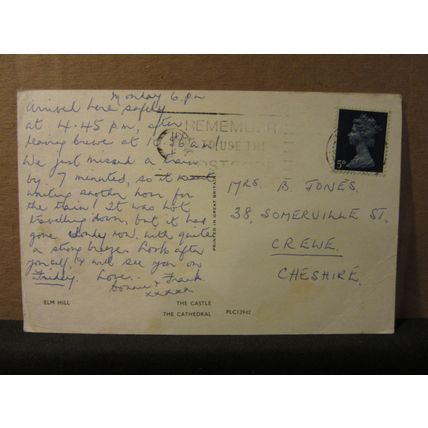 Monday 6. pm
Arrived here safely
at 4.45 pm, after
leaving Crewe at 10.56 a.m!
We just missed a train
by 7 minutes, so it
waiting another hour for
the train! It was hot
travelling down, but it has
gone cloudy now. With quite
a strong breeze. Look after
yourself, & will see you on
Friday. Love.
Connie & Frank
xxxxxx
REMEMBER
TO USE THE
POSTCODE
5D
PRINTED IN GREAT BRITAIN
MRS. B. JONES.
38, SOMERVILLE ST,
CREWE.
CHESHIRE.
ELM HILL
THE CASTLE
THE CATHEDRAL
PLC13942